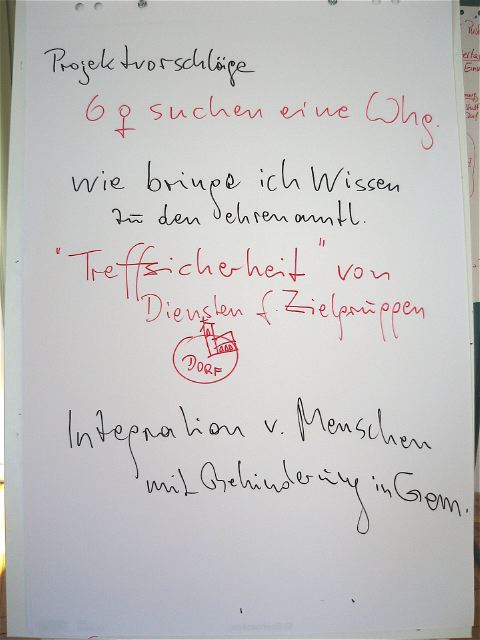 Projektvorschläge
6 ♀ suchen eine Whg.
wie bringe ich Wissen
zu den ehrenamtl.
"Treffsicherheit" von
Diensten f. Zielgruppen
DORF
Integration v. Menschen
mit Behinderung in Gem.